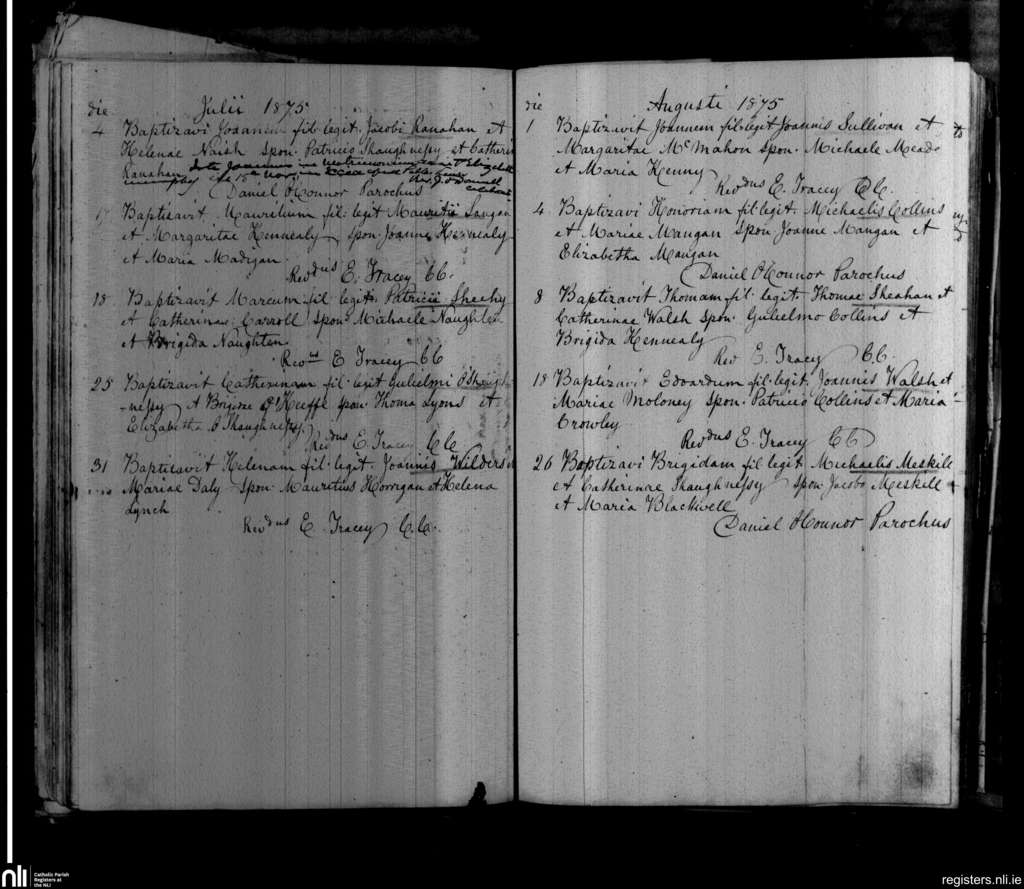 die Julii 1875
4 Baptizavi Joannem fil. legit. Jacobi Ranahan et
Helenae Naish Spon. Patricio Shaughnessy et Catherin
Ranahan. Iste Joannes in matrimonium
Daniel O'Connor Parochus
17 Baptizavit Mauritium fil. legit Mauritii
et Margaritae Kennealy Spon. Joanne Kennealy
et Maria Madigan.
Revdus E. Tracey CC.
18 Baptizavit Marcum fil. legit. Patricii Sheehy
et Catherinae Carroll Spon. Michaele Naughten
et Brigida Naughten
Revdus E Tracey CC
25 Baptizavit Catherinam fil. legit Gulielmi O'Shaugh
-nessy et Brigidae O'Keeffe spon. Thoma Lyons et
Elizabetha O'Shaughnessy.
Revdus E. Tracey CC
31 Baptizavit Helenam fil. legit. Joannis Wilders
Mariae Daly Spon. Mauritius Horrigan et Helena
Lynch
Revdus E. Tracey C.C.
die Augusti 1875
1 Baptizavit Joannem fil. legit Joannis Sullivan et
Margaritae McMahon Spon. Michaele Meade
et Maria Kenny
Revdus E. Tracey CC.
4 Baptizavi Honoriam fil. legit. Michaelis Collins
et Mariae Mangan Spon Joanne Mangan et
Elizabetha Mangan
Daniel O'Connor Parochus
8 Baptizavit Thomam fil. legit. Thomae Sheahan et
Catherinae Walsh Spon. Gulielmo Collins et
Brigida Kennealy
Rev E. Tracey CC.
18 Baptizavit Edvardum fil. legit. Joannis Walsh et
Mariae Moloney Spon. Patricio Collins et Maria
Crowley
Revdus E. Tracey CC
26 Baptizavi Brigidam fil legit Michaelis Meskill
et Catherinae Shaughnessy Spon Jacobo Meskell
et Maria Blackwell
Daniel O'Connor Parochus
nli Catholic Parish
Registers at
the NLI
registers.nli.ie